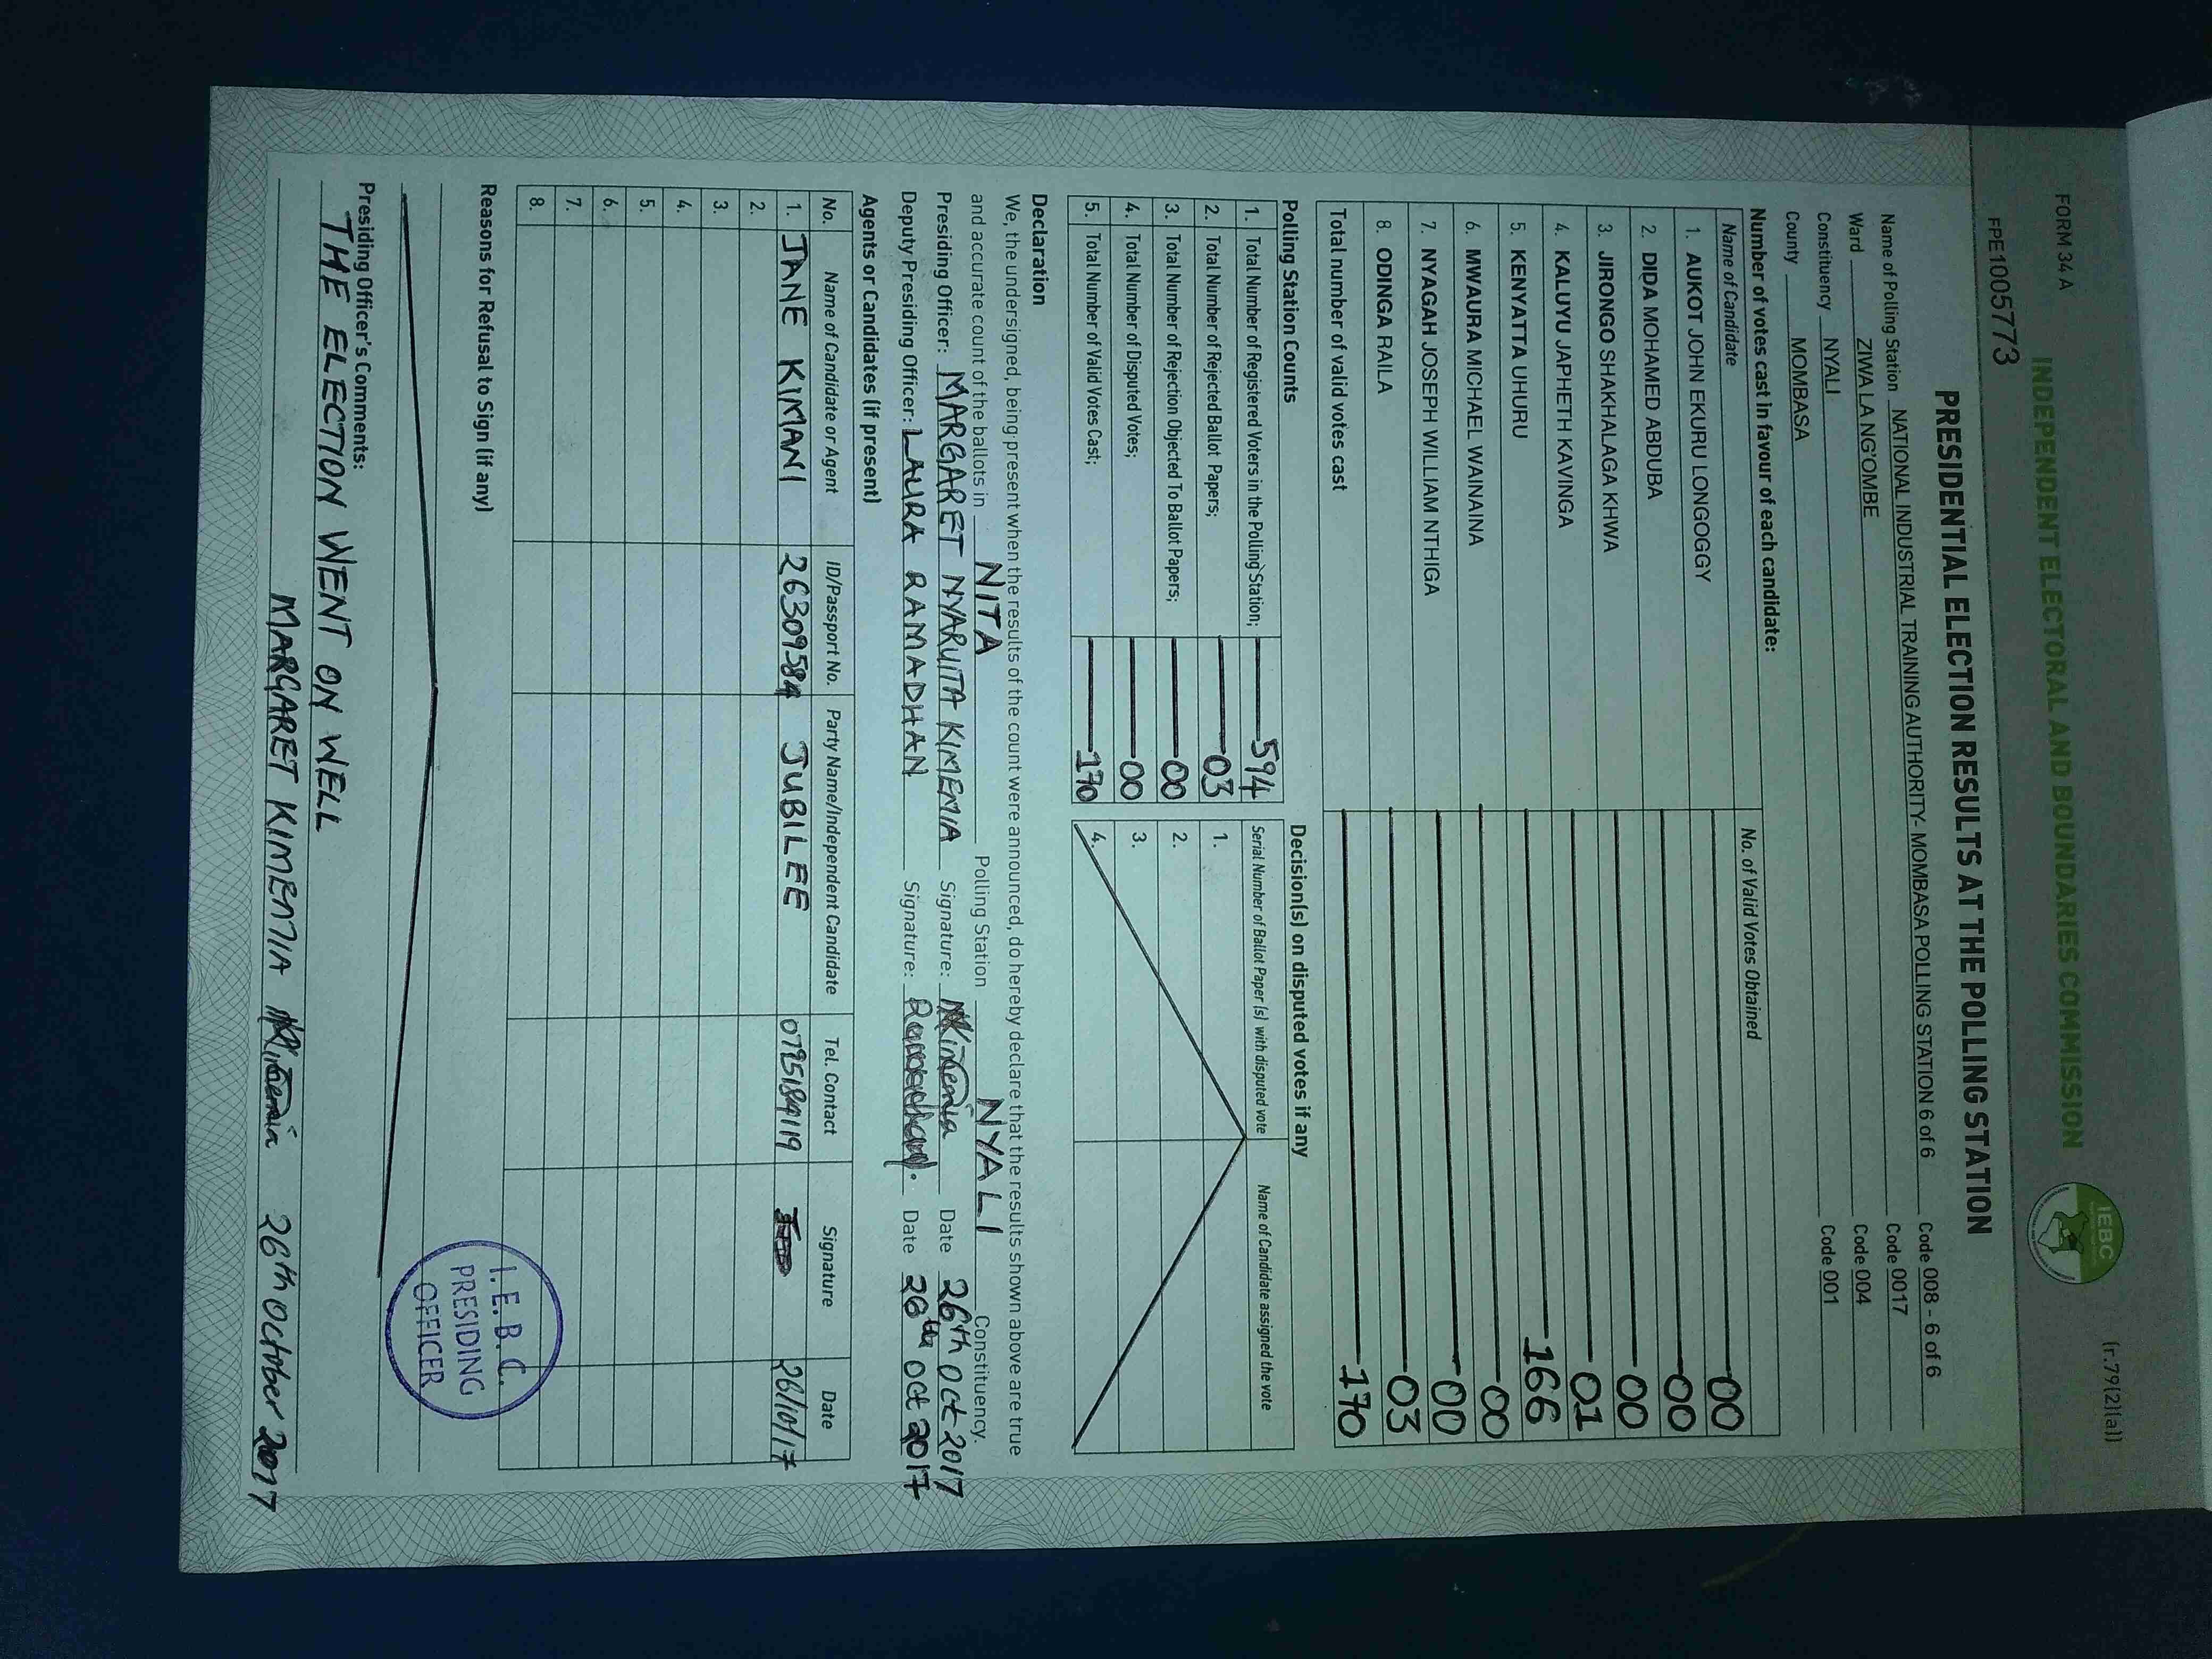 FORM 34 A
(r.79(2)(a))
INDEPENDENT ELECTORAL AND BOUNDARIES COMMISSION
IEBC
FPE1005773
PRESIDENTIAL ELECTION RESULTS AT THE POLLING STATION
Name of Polling Station NATIONAL INDUSTRIAL TRAINING AUTHORITY- MOMBASA POLLING STATION 6 of 6 Code 008 - 6 of 6
Ward ZIWA LA NG'OMBE Code 0017
Constituency NYALI Code 004
County MOMBASA Code 001
Number of votes cast in favour of each candidate:
Name of Candidate No. of Valid Votes Obtained
1. AUKOT JOHN EKURU LONGOGGY 00
2. DIDA MOHAMED ABDUBA 00
3. JIRONGO SHAKHALAGA KHWA 00
4. KALUYU JAPHETH KAVINGA 01
5. KENYATTA UHURU 166
6. MWAURA MICHAEL WAINAINA 00
7. NYAGAH JOSEPH WILLIAM NTHIGA 00
8. ODINGA RAILA 03
Total number of valid votes cast 170
Polling Station Counts
1. Total Number of Registered Voters in the Polling Station; 594
2. Total Number of Rejected Ballot Papers; 03
3. Total Number of Rejection Objected To Ballot Papers; 00
4. Total Number of Disputed Votes; 00
5. Total Number of Valid Votes Cast; 170
Decision(s) on disputed votes if any
Serial Number of Ballot Paper (s) with disputed vote Name of Candidate assigned the vote
1.
2.
3.
4.
Declaration
We, the undersigned, being present when the results of the count were announced, do hereby declare that the results shown above are true
and accurate count of the ballots in NITA Polling Station NYALI Constituency.
Presiding Officer: MARGARET NYARUITA KIMEMIA Signature: Kimemia Date 26th Oct 2017
Deputy Presiding Officer: LAURA RAMADHAN Signature: Date 26th Oct 2017
Agents or Candidates (if present)
No. Name of Candidate or Agent ID/Passport No. Party Name/Independent Candidate Tel. Contact Signature Date
1. JANE KIMANI 26309584 JUBILEE 0725189119 26/10/17
2.
3.
4.
5.
6.
7.
8.
Reasons for Refusal to Sign (if any)
I.E.B.C.
PRESIDING
OFFICER
Presiding Officer's Comments:
THE ELECTION WENT ON WELL
MARGARET KIMEMIA Kimemia 26th October 2017